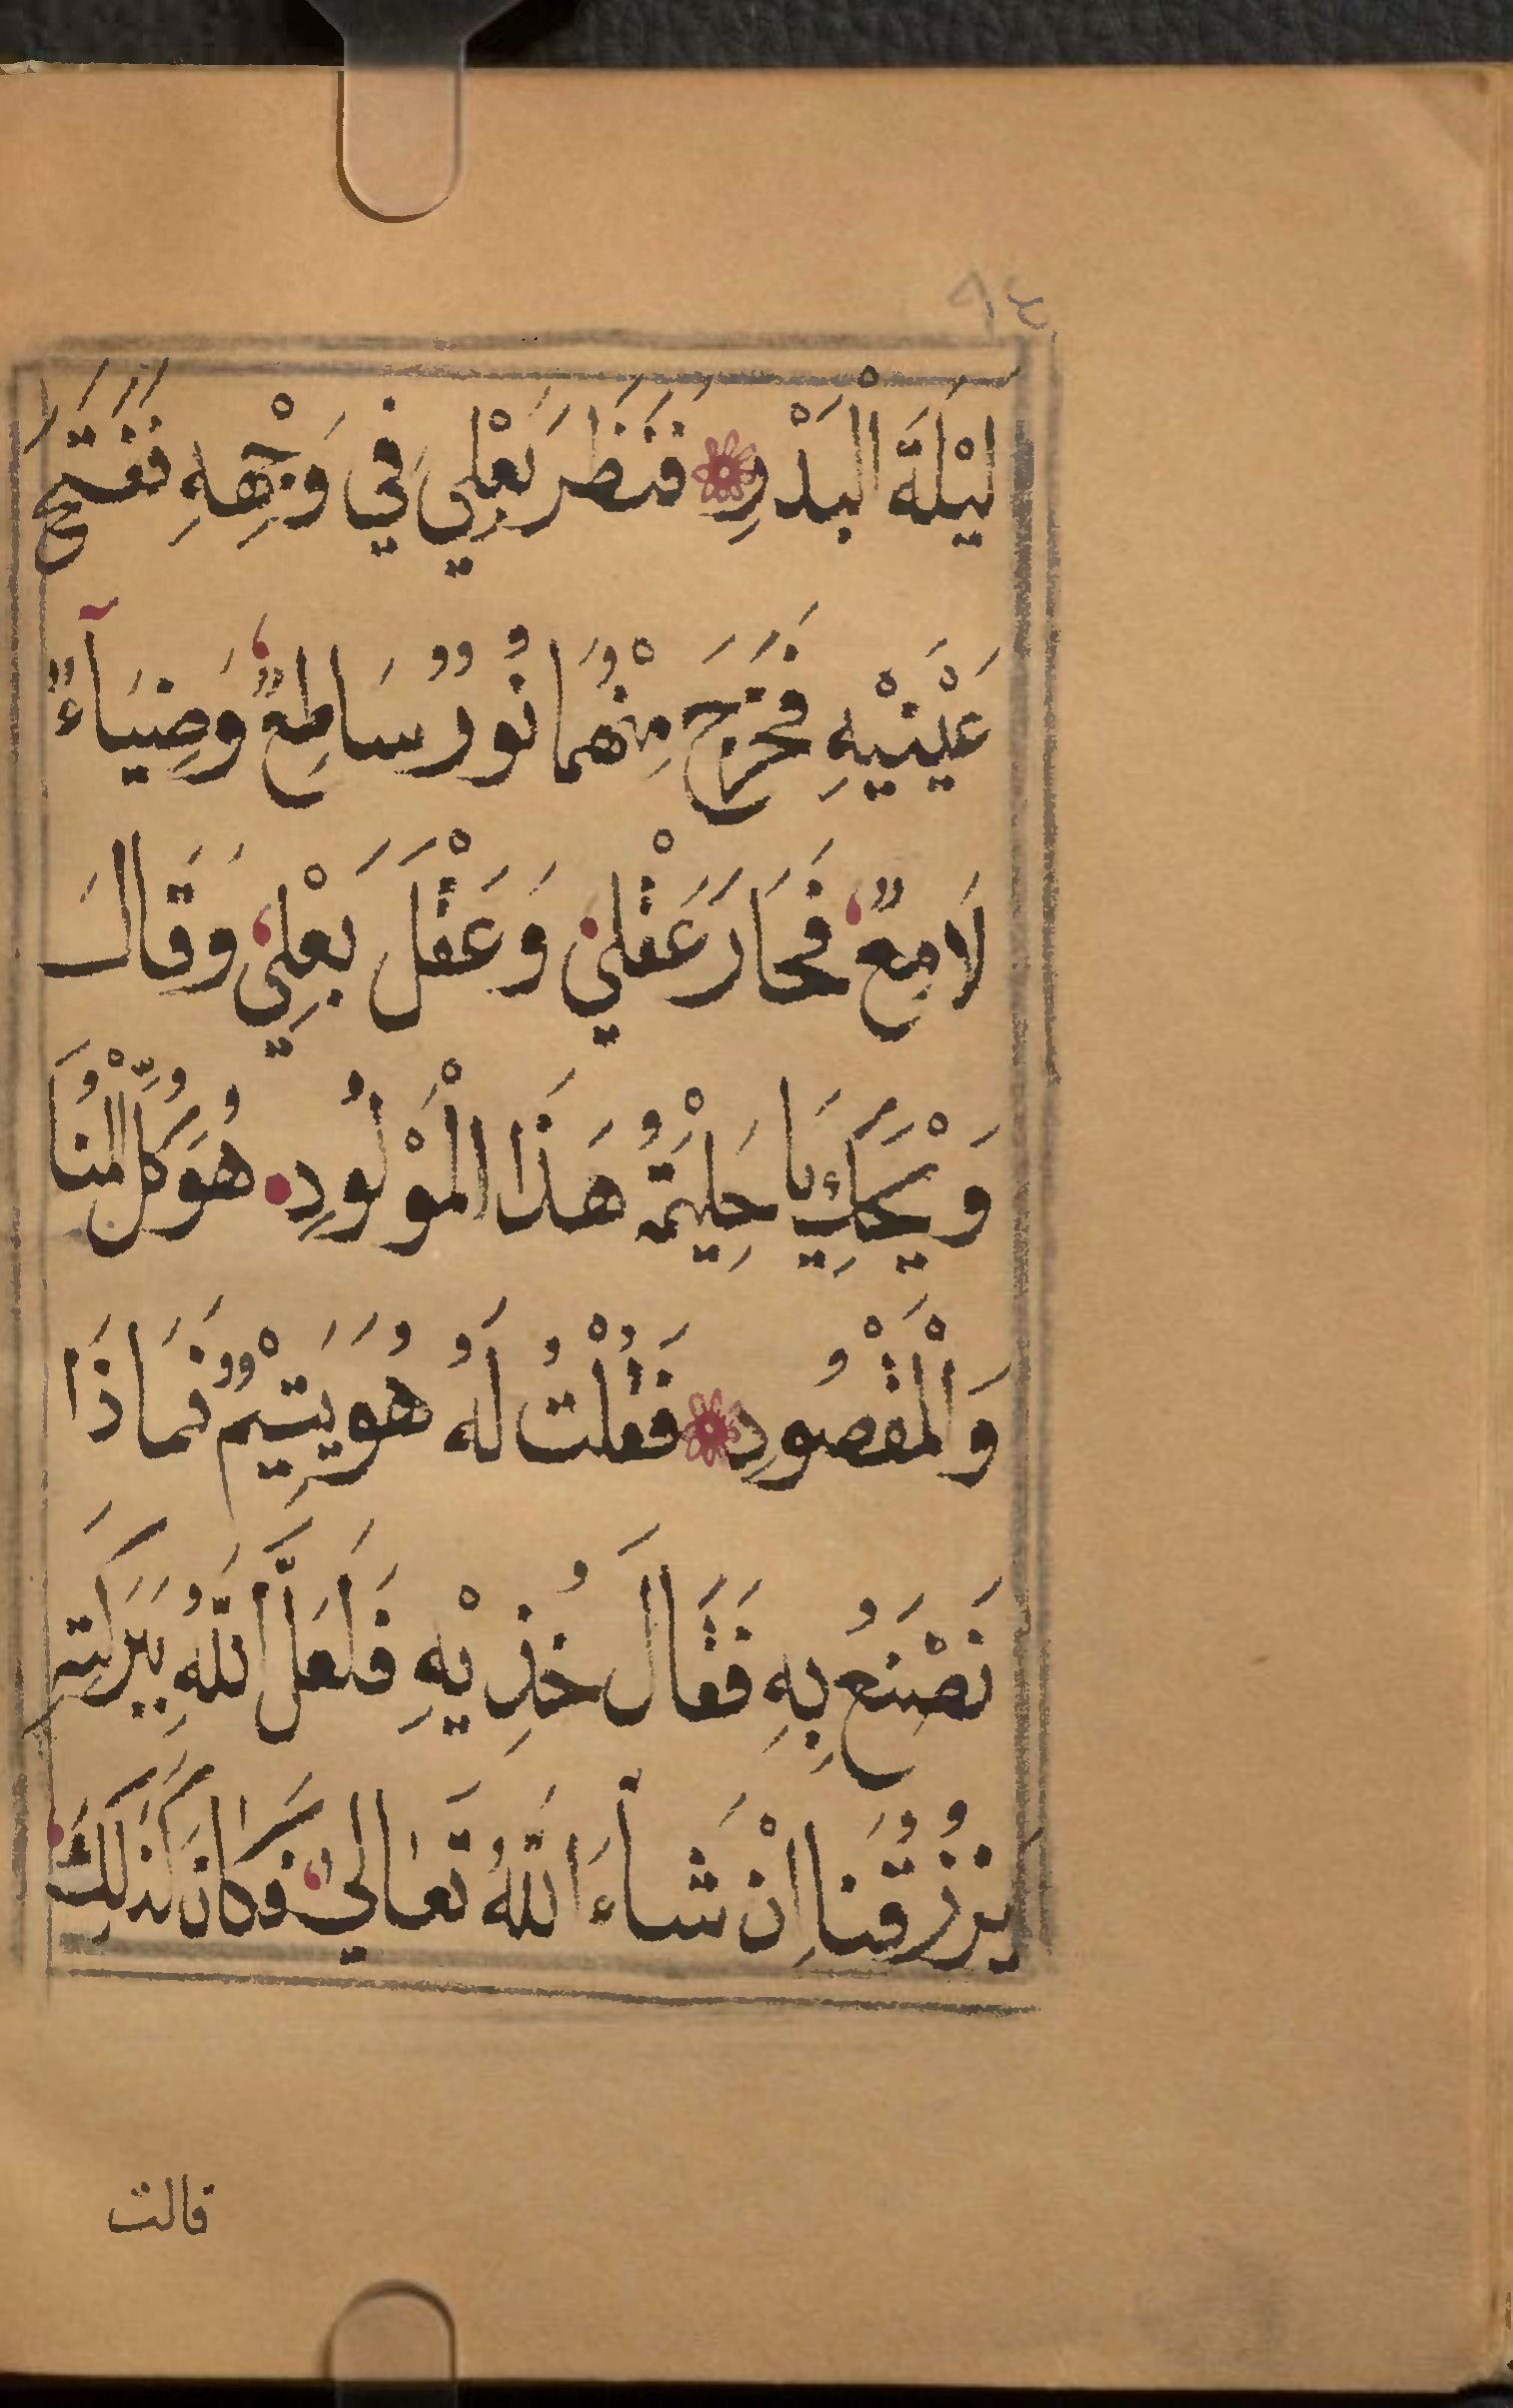 ٩٤
لَيْلَةَ الْبَدْرِ فَنَظَرَ بَعْلِي فِي وَجْهِهِ فَفَتَحَ
عَيْنَيْهِ فَخَرَجَ مِنْهُمَا نُورٌ سَاطِعٌ وَضِيَآءٌ
لَامِعٌ فَحَارَ عَقْلِي وَعَقْلَ بَعْلِي وَقَالَ
وَيْحَكِ يَا حَلِيْمَةُ هَذَا الْمَوْلُودِ هُوَ كُلُّ الْمُنَا
وَالْمَقْصُودِ فَقُلْتُ لَهُ هُوَ يَتِيْمٌ فَمَاذَا
نَصْنَعُ بِهِ فَقَالَ خُذِيْهِ فَلَعَلَّ اللَّهُ بِبَرَكَتِهِ
يَرْزُقُنَا اِنْ شَاءَ اللَّهُ تَعَالَى فَكَانَ كَذَلِكَ
قالت